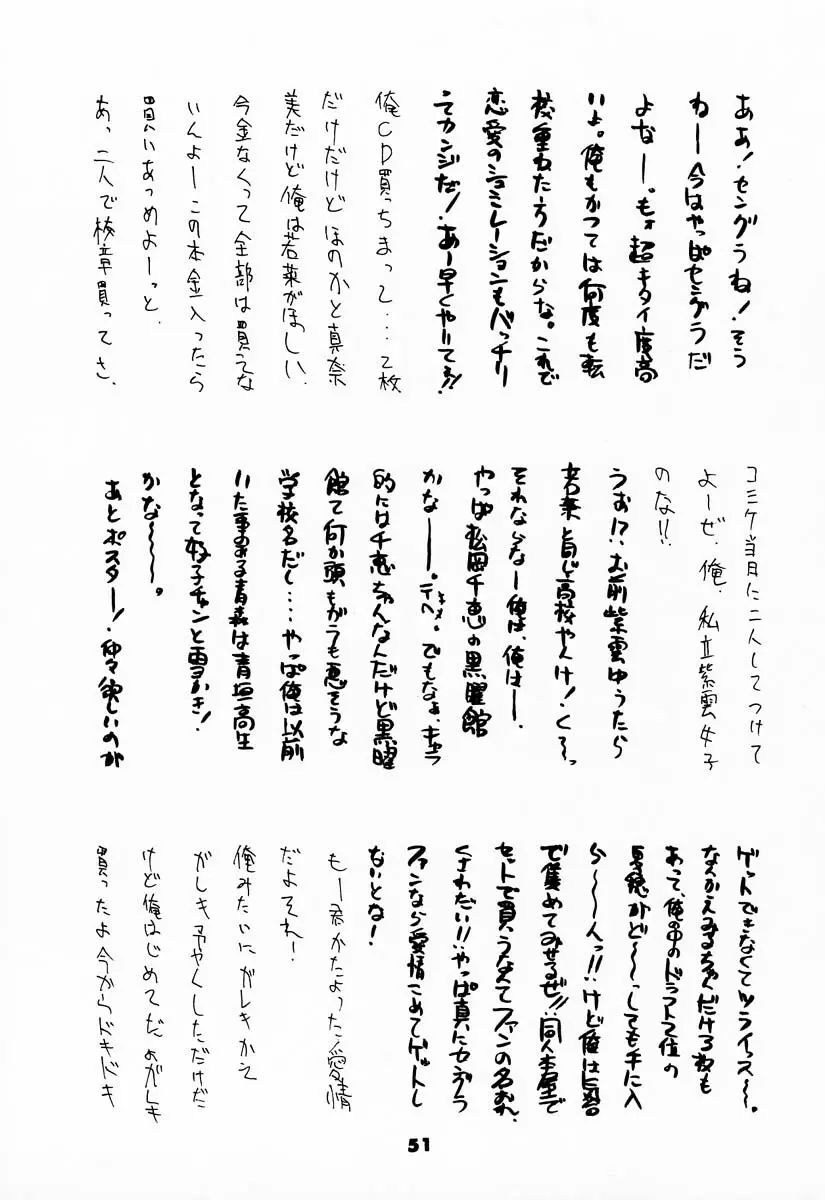 ああ！セングラね！そう
ねー今はやっぱセングラだ
よなー。もォ超キタイ度高
いよ。俺もかつては何度も転
校重ねた方だからな。これで
恋愛のシュミレーションもバッチリ
てカンジだ！あー早くやりてぇ！
俺CD買っちまって…2枚
だけだけど ほのかと真奈
美だけど俺は若菜がほしい、
今金なくって全部は買えな
いんよーこの本金入ったら
買いあつめよーっと、
あっ二人で校章買ってさ、
コミケ当日に二人してつけて
よーぜ、俺、私立紫雲女子
のな!!
うお!?お前紫雲ゆうたら
若菜と同じ高校やんけ！くっ
それならなー俺は、俺はー、
やっぱ松岡千恵の黒曜館
かなー。テヘ。でもなぁ、キャラ
的には千恵ちゃんなんだけど黒曜
館て何か頭もガラも悪そうな
学校名だし…やっぱ俺は以前
いた事のある青森は青垣高生
となって妙子チャンと雪かき！
かな〜〜。
あとポスター！仲々欲しいのが
ゲットできなくてツライっス〜。
なんかえみるちゃんだけ3枚も
あって、俺の中のドラフト2位の
夏穂がど〜〜っしても手に入
ら〜〜んっ!!けど俺は自習
で集めてみせるぜ!!同人本屋で
セットで買うなんてファンの名おれ、
くさわたい!!やっぱ真にセングラ
ファンなら愛情こめてゲットし
ないとな！
もー君かたよった愛情
だよそれー
俺みたいにガレキかえ
ガレキ予やくしただけだ
けど俺はじめてだよガレキ
買ったよ今からドキドキ
51